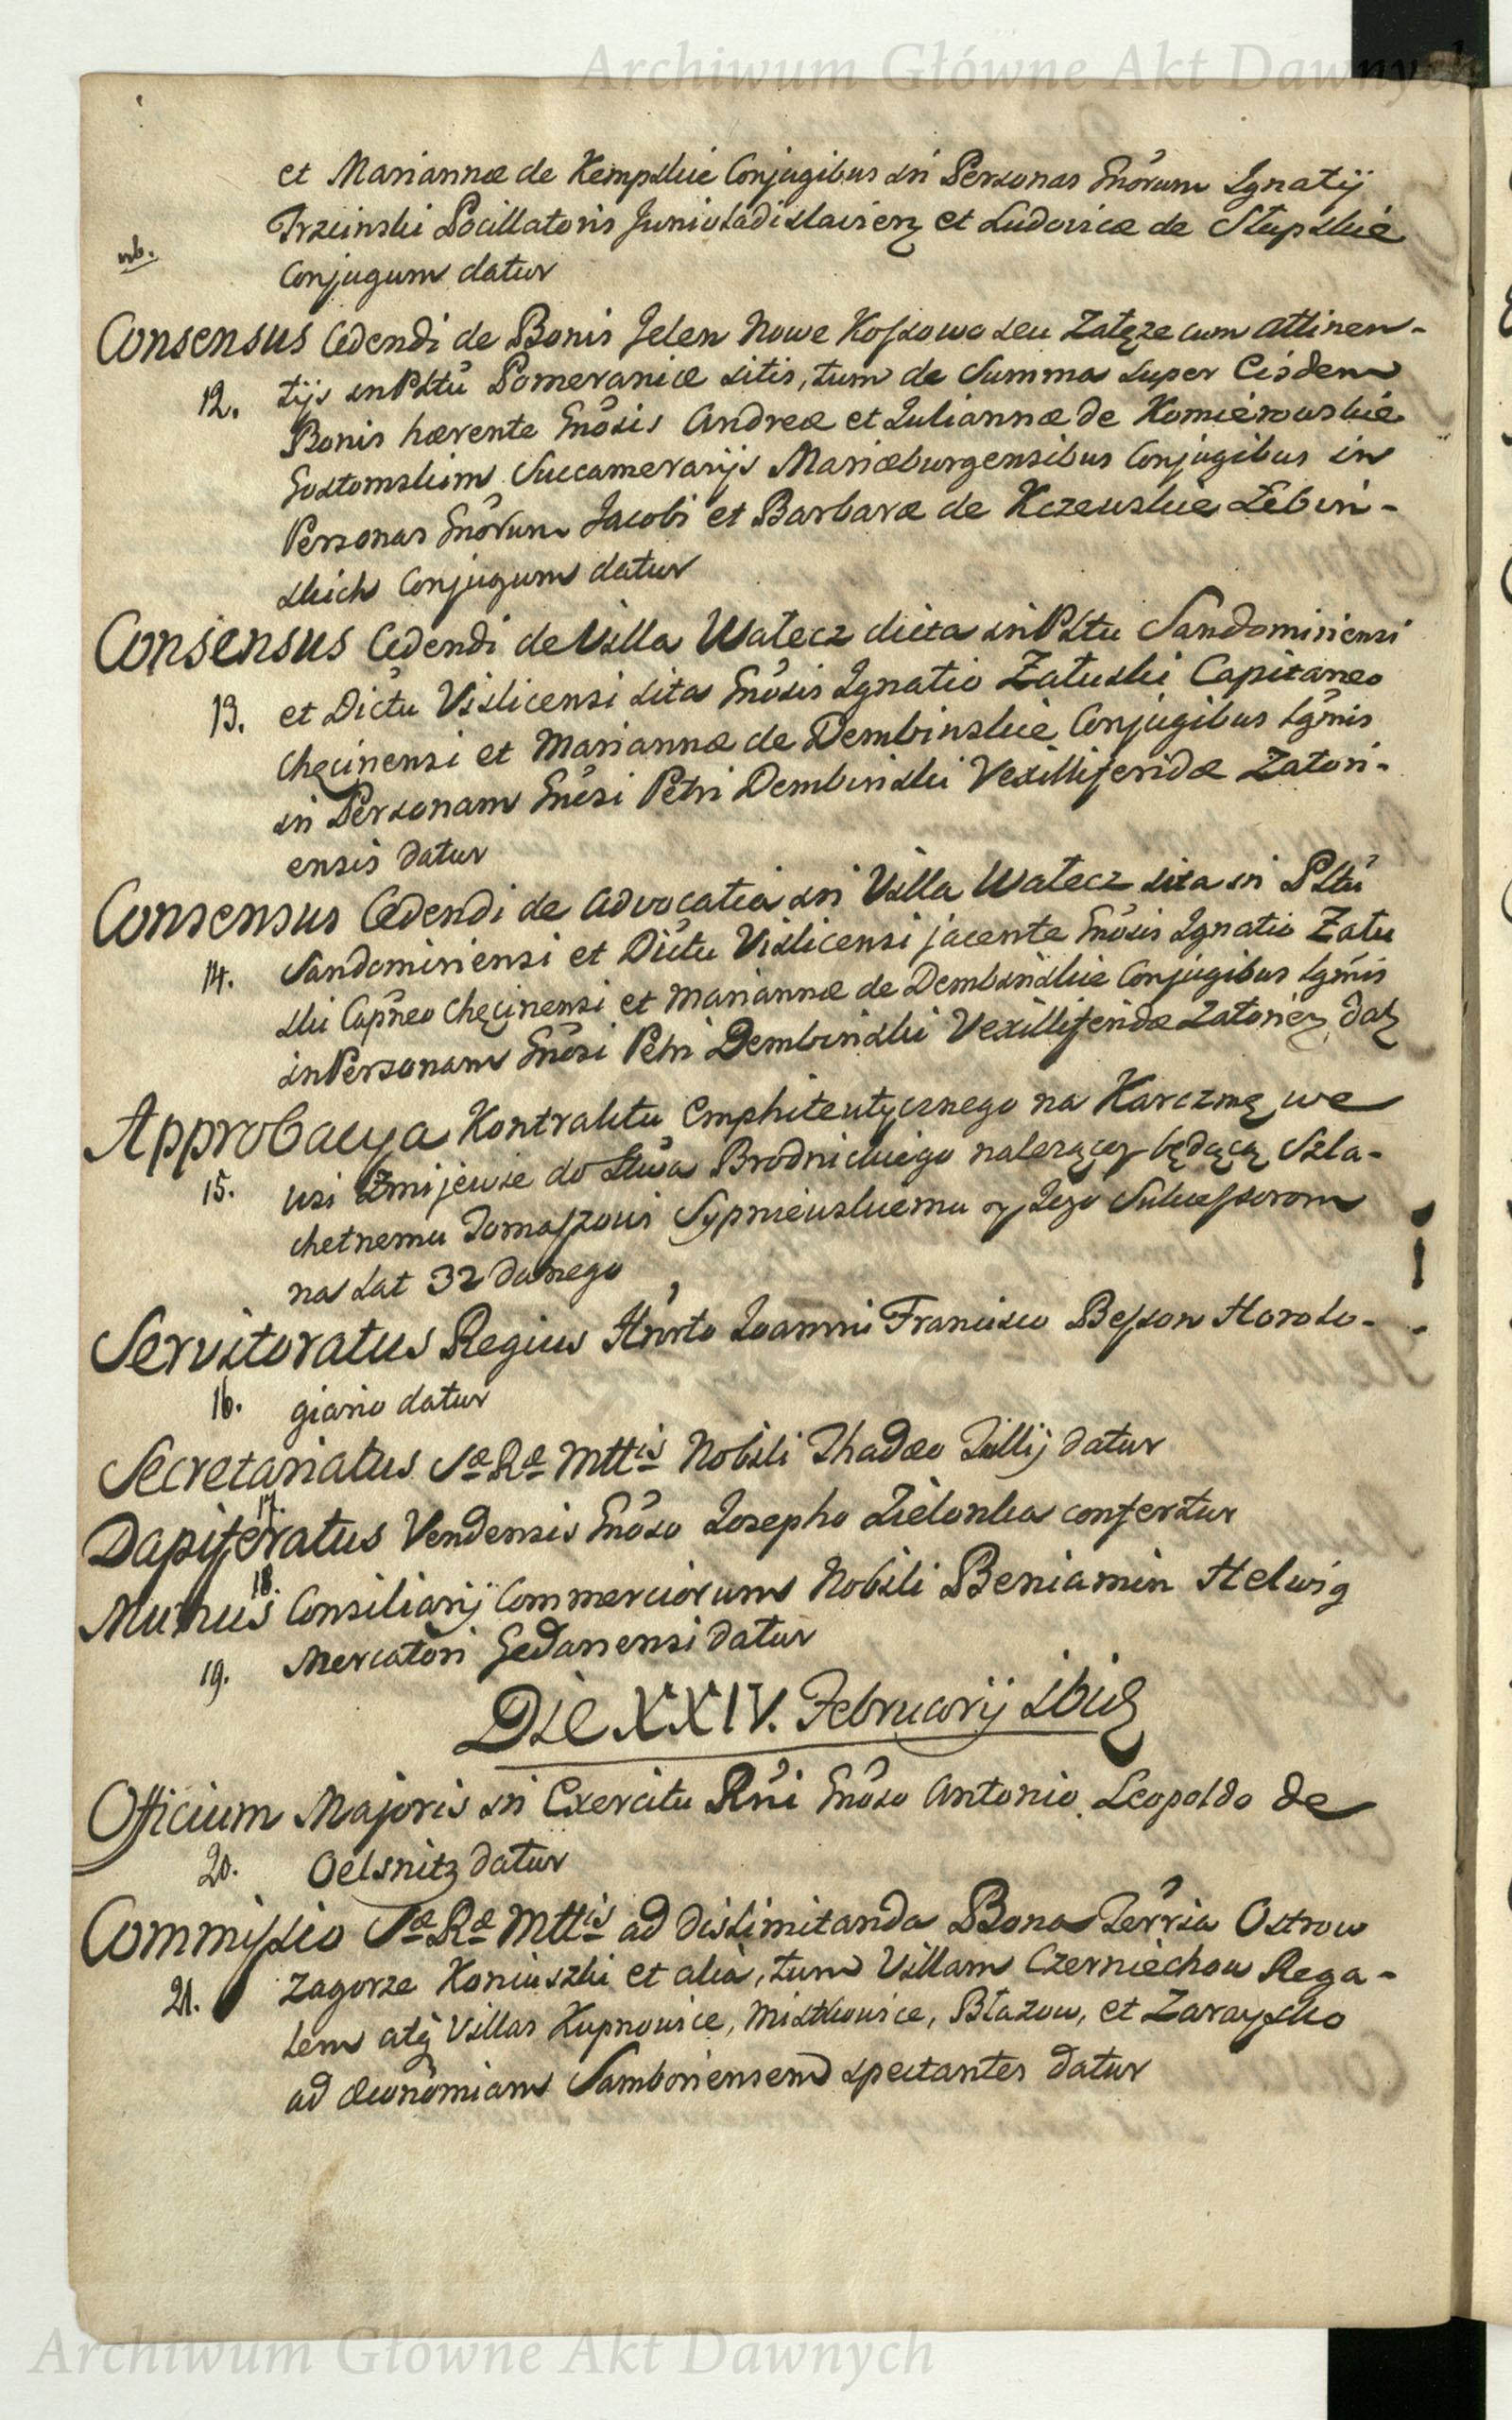 Archiwum Główne Akt Dawnych
et Mariannæ de Kempskie Conjugibus in Personas Gnõrum Ignatij
Trzcinski Pocillatoris Junivladislavien et Ludovicæ de Słupskie
nb.
Conjugum datur
Consensus Cedendi de Bonis Jelen Nowe Kossowo seu Załęze cum attinen-
12. tijs in Pltũ Pomeraniæ sitis, tum de Summa super Eisdem
Bonis hærente Gnõsis Andreæ et Juliannæ de Komierowskie
Gostomskim Succamerarijs Mariæburgensibus Conjugibus in
Personas Gnõrum Jacobi et Barbaræ de Kczewskie Lebin-
skich Conjugum datur
Consensus Cedendi de Villa Wałecz dicta in Pltu Sandomiriensi
13. et Dictu Vislicensi sita Gnõsis Ignatio Załuski Capitaneo
Chęcinensi et Mariannæ de Dembinskie Conjugibus Lgmis
in Personam Gnõsi Petri Dembinski Vexilliferidæ Zatori-
ensis datur
Consensus Cedendi de Advocatia in Villa Wałecz sita in Pltũ
14. Sandomiriensi et Dictu Vislicensi jacente Gnõsis Ignatio Zału
ski Capneo Chęcinensi et Mariannæ de Dembinskie Conjugibus Lgmis
in Personam Gnõsi Petri Dembinski Vexilliferidæ Zatorien dat
Approbacya Kontraktu Emphiteutycznego na Karczmę we
15. wsi Zmijewie do Stwa Brodnickiego nalezącey będącą Szla-
chetnemu Tomaszowi Sypniewskiemu y Jego Sukcessorom
na Lat 32 danego
Servitoratus Regius Hnrto Joanni Francisco Besson Horolo-
16. giario datur
Secretariatus Sæ Ræ Mttis Nobili Thadæo Jullij datur
17.
Dapiferatus Vendensis Gnõso Josepho Zielonka confertur
18.
Munus Consiliarij Commerciorum Nobili Beniamin Helwig
19. Mercatori Gedanensi datur
Die XXIV. Februarij ibid
Officium Majoris in Exercitu Rni Gnõso Antonio Leopoldo de
20. Oelsnitz datur
Commissio Sæ Ræ Mttis ad dislimitanda Bona Terria Ostrow
21. Zagorze Koniuszki et alia, tum Villam Czerniechow Rega-
lem atq Villas Kupnowice, Mistkowice, Błazow, et Zaraysko
ad Œconomiam Samboriensem spectantes datur
Archiwum Główne Akt Dawnych